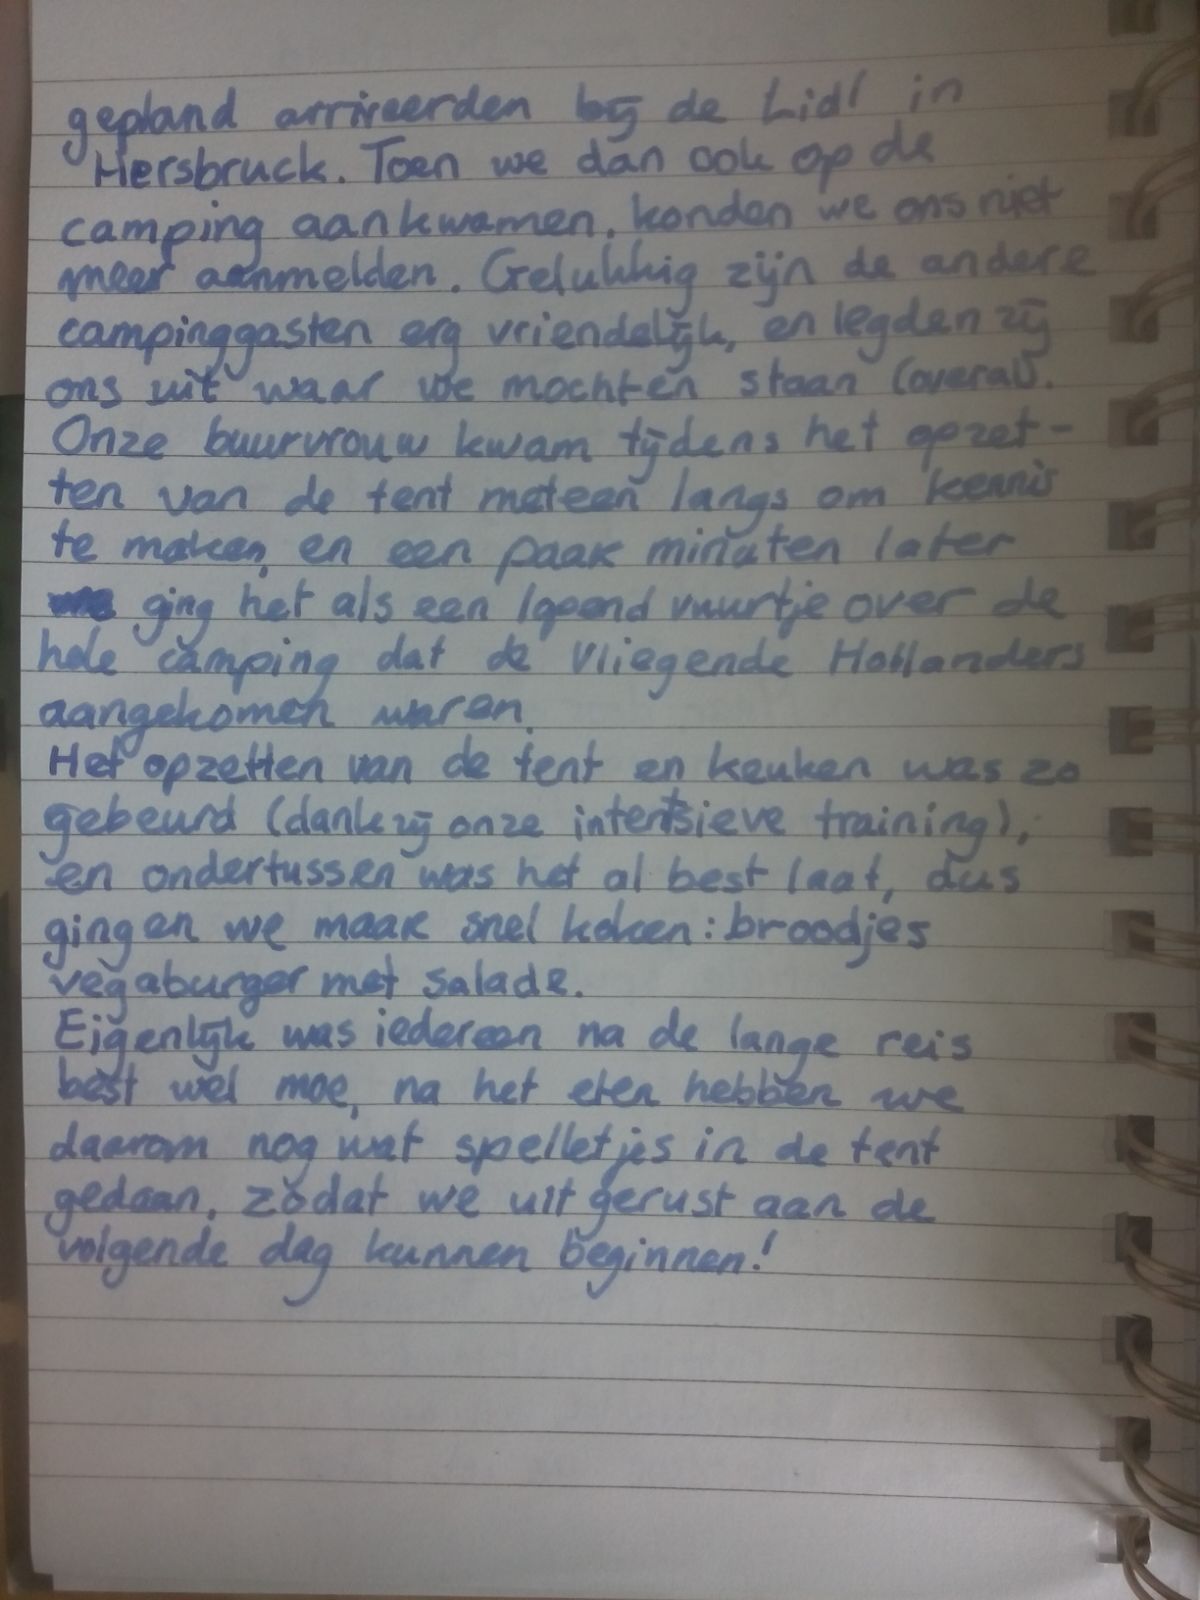 gepland arriveerden bij de Lidl in
Hersbruck. Toen we dan ook op de
camping aankwamen, konden we ons niet
meer aanmelden. Gelukkig zijn de andere
campinggasten erg vriendelijk, en legden zij
ons uit waar we mochten staan (overal).
Onze buurvrouw kwam tijdens het opzet-
ten van de tent meteen langs om kennis
te maken, en een paar minuten later
ging het als een lopend vuurtje over de
hele camping dat de vliegende Hollanders
aangekomen waren.
Het opzetten van de tent en keuken was zo
gebeurd (dankzij onze intentsieve training),
en ondertussen was het al best laat, dus
gingen we maar snel koken: broodjes
vegaburger met salade.
Eigenlijk was iedereen na de lange reis
best wel moe, na het eten hebben we
daarom nog wat spelletjes in de tent
gedaan, zodat we uitgerust aan de
volgende dag kunnen beginnen!